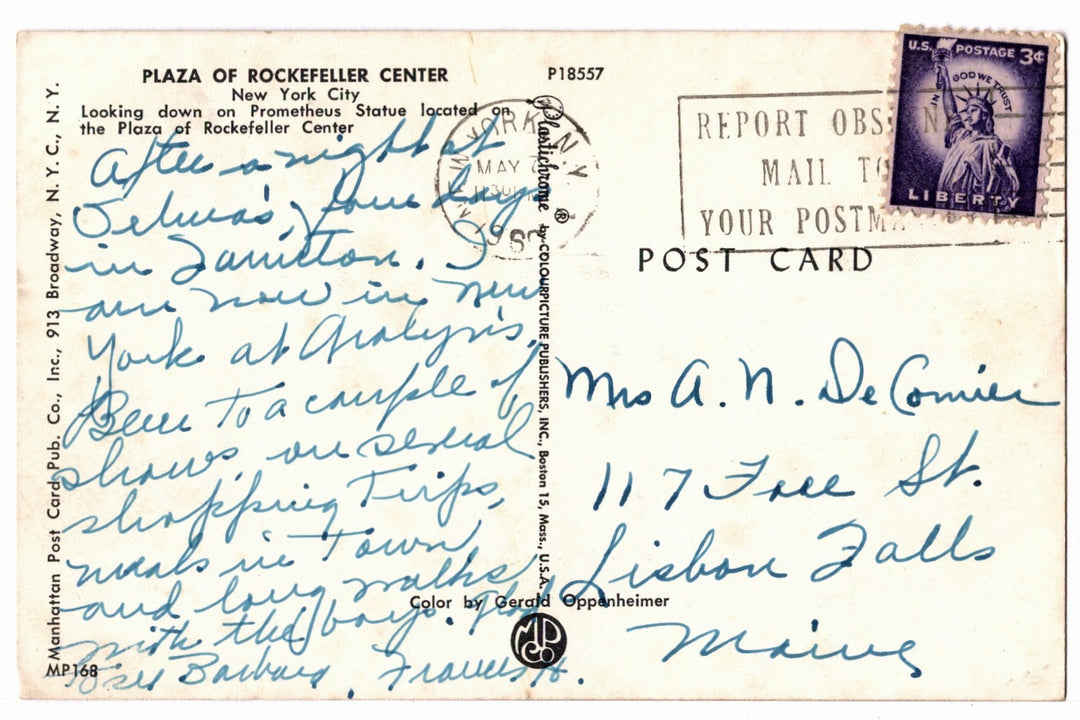 PLAZA OF ROCKEFELLER CENTER
New York City
Looking down on Prometheus Statue located on
the Plaza of Rockefeller Center
P18557
After a night at
four days
in
I
am now in New
York at
Been to a couple of
shows, on several
shopping trips,
meals in town
and long walks
with the boys. Glad
Barbara. Frances H.
MP168
Manhattan Post Card Pub. Co., Inc., 913 Broadway, N. Y. C., N. Y.
Plastichrome ® by COLOURPICTURE PUBLISHERS, INC., Boston 15, Mass., U.S.A.
NEW YORK, N.Y.
MAY
REPORT
MAIL TO
YOUR
U.S. POSTAGE 3¢
IN GOD WE TRUST
LIBERTY
POST CARD
Mrs A. N. De Cormier
117 Free St.
Lisbon Falls
Maine
Color by Gerald Oppenheimer
MP Co